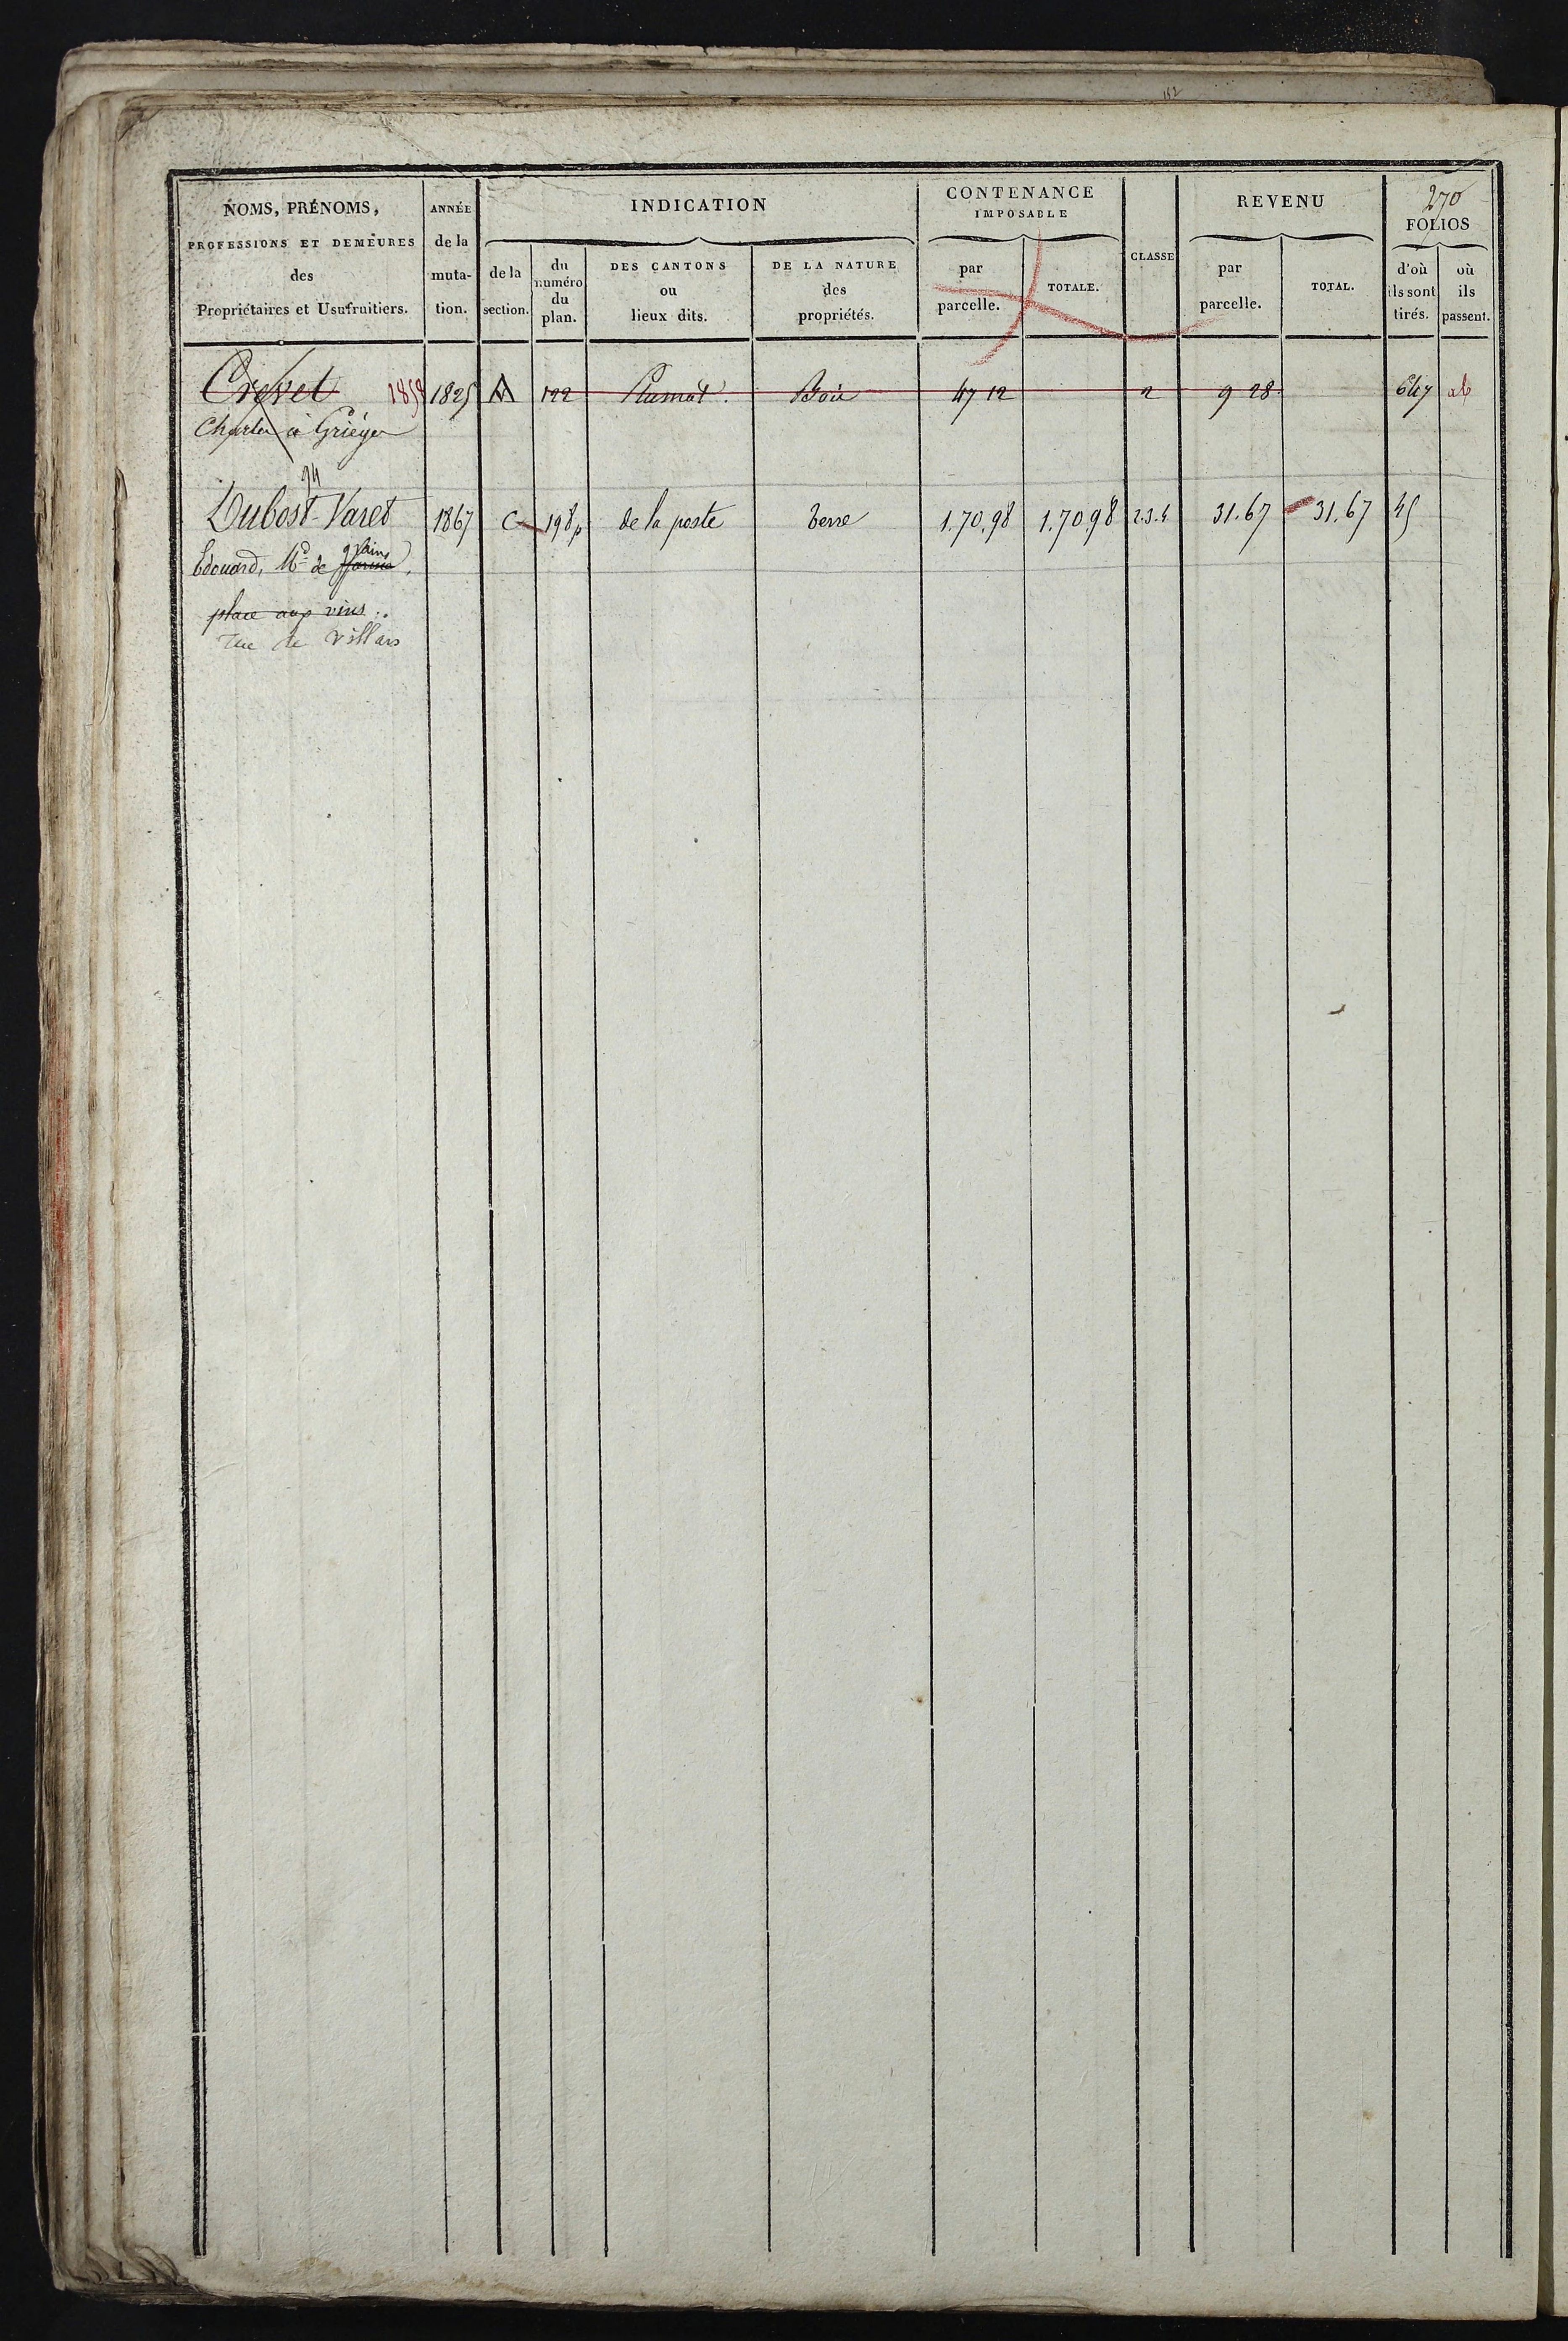 152
NOMS, PRÉNOMS,
PROFESSIONS ET DEMEURES
des
Propriétaires et Usufruitiers.
ANNÉE
de la
muta-
tion.
INDICATION
de la
section.
du
numéro
du
plan.
DES CANTONS
ou
lieux dits.
DE LA NATURE
des
propriétés.
CONTENANCE
IMPOSABLE
par
parcelle.
TOTALE.
CLASSE
REVENU
par
parcelle.
TOTAL.
270
FOLIOS
d'où
ils sont
tirés.
où
ils
passent.
1858 1825 A 122 Bois 47 12 2 9 28 647
à Grièges
94
Dubost-Varet 1867 C 198p de la poste terre 1.70.98 1.70 98 2.3.4 31.67 31.67 45
grains
Edouard, Md de
place aux vins.
rue de Villars